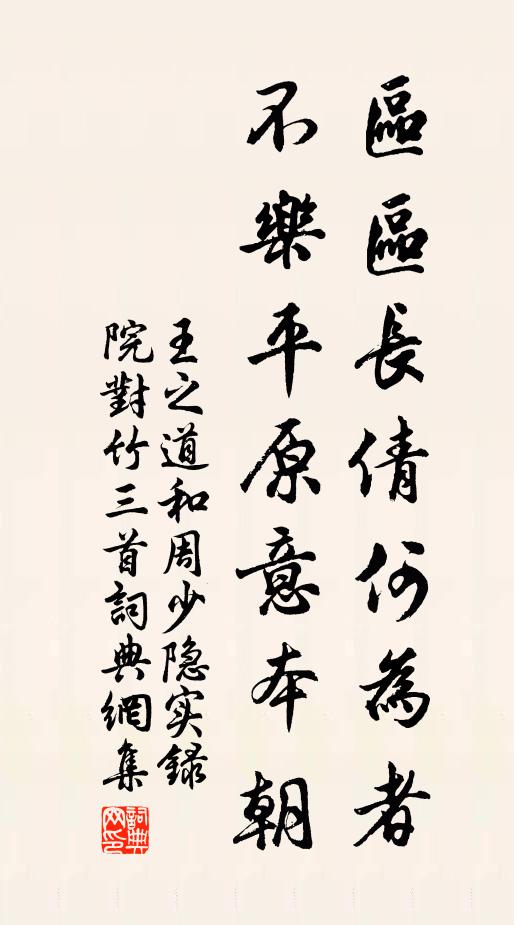 區區長倩何為者
不樂平原意本朝
王之道和周少隐实録
院對竹三首詞典網集
詞典网印